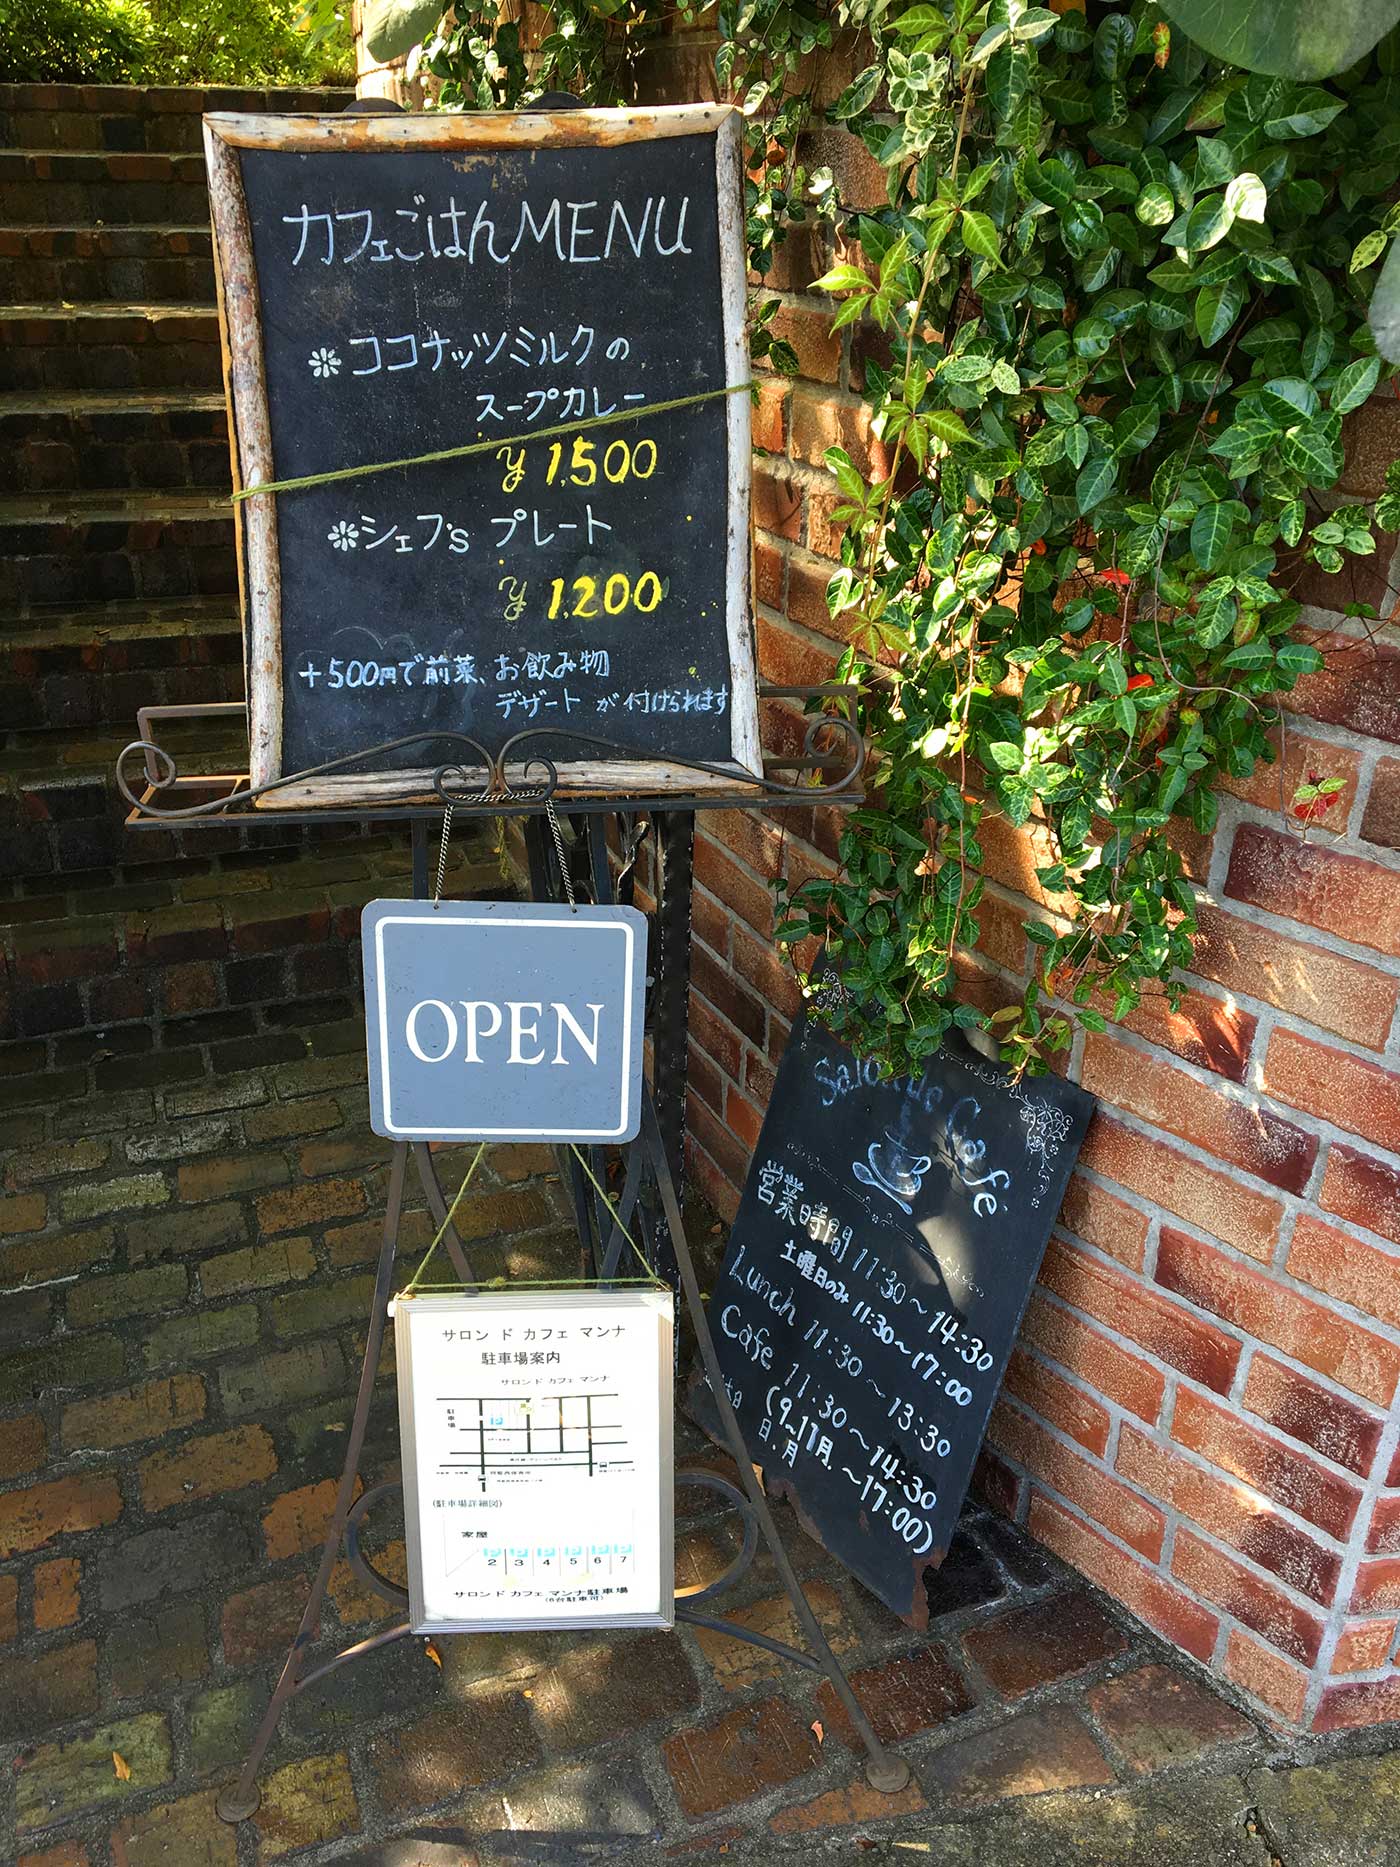 カフェごはんMENU
❊ココナッツミルクの
スープカレー
¥1,500
❊シェフ's プレート
¥1,200
+500円で前菜、お飲み物
デザートが付けられます
OPEN
サロン ド カフェ マンナ
駐車場案内
サロンド カフェ マンナ
駐車場
(駐車場詳細図)
家屋
2 3 4 5 6 7
サロンド カフェ マンナ駐車場
(6台駐車可)
Salon de Cafe.
営業時間 11:30〜14:30
土曜日のみ 11:30〜17:00
Lunch 11:30〜13:30
Cafe 11:30〜14:30
(9〜11月.〜17:00)
日、月